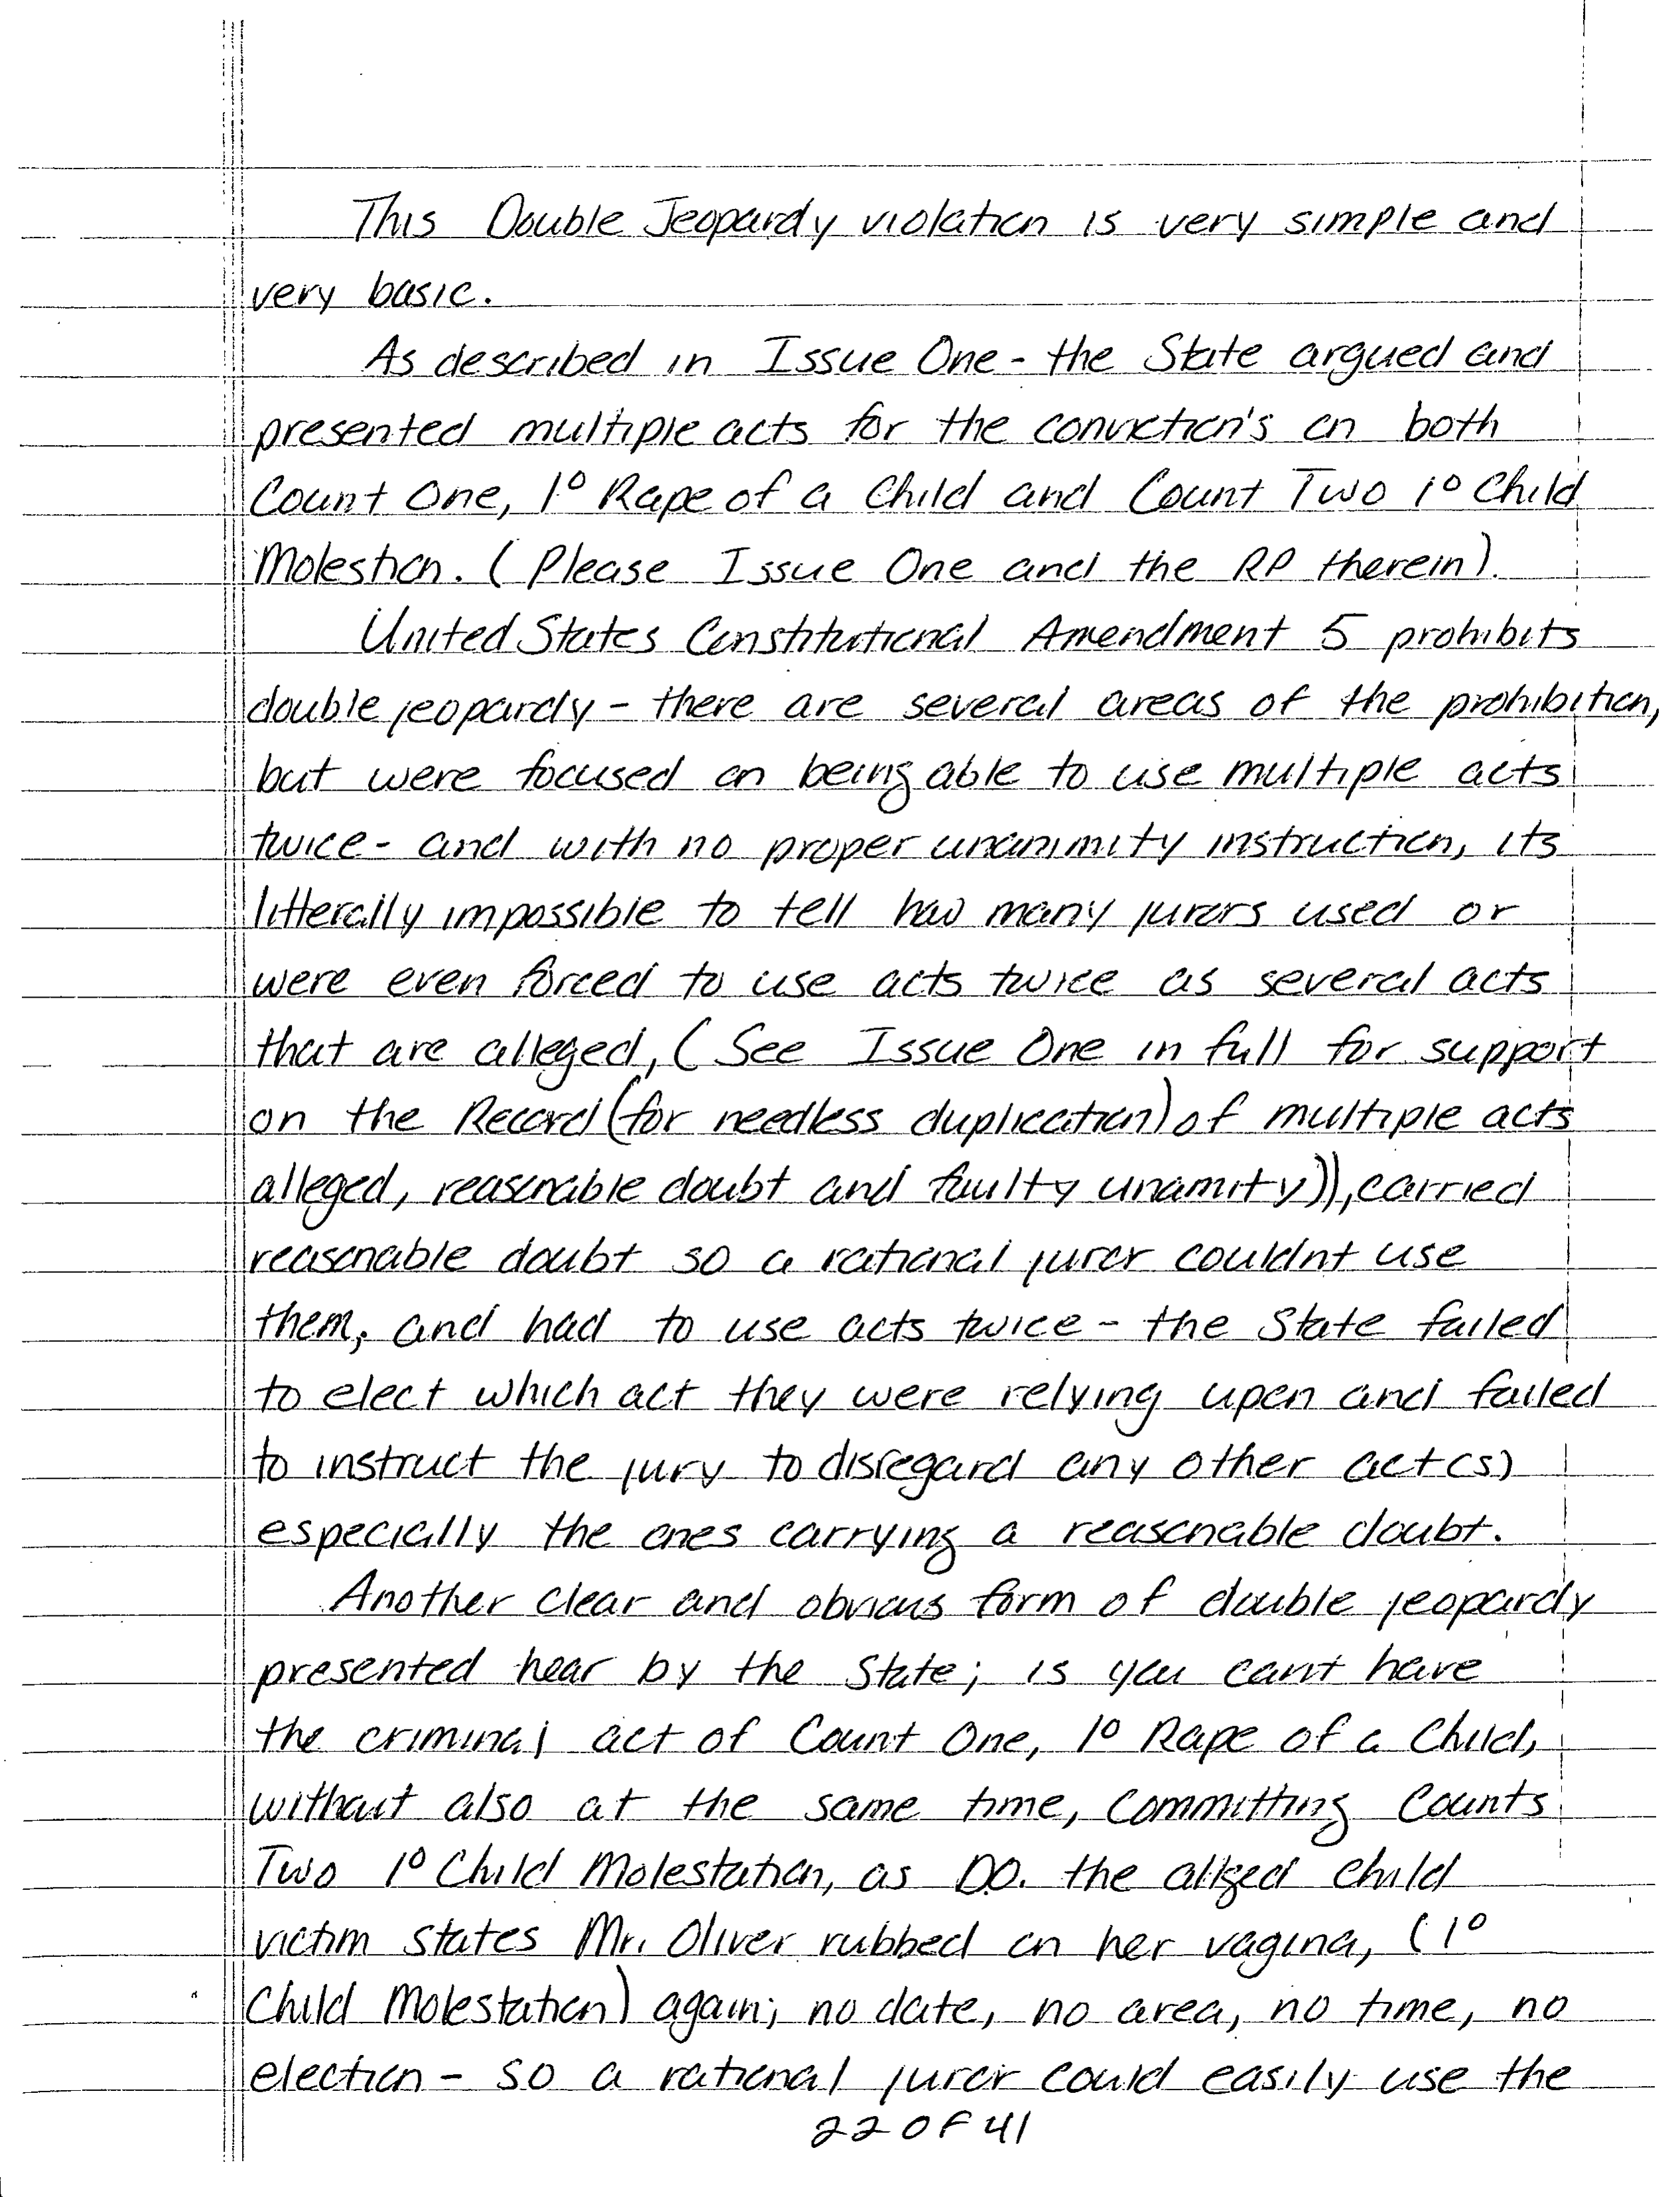 This Double Jeopardy violation is very simple and
very basic.
As described in Issue One - the State argued and
presented multiple acts for the conviction's on both
Count One, 1° Rape of a Child and Count Two 1° Child
Molestion. (Please Issue One and the RP therein).
United States Constitutional Amendment 5 prohibits
double jeopardy - there are several areas of the prohibition,
but were focused on being able to use multiple acts
twice - and with no proper unanimity instruction, its
litterally impossible to tell how many jurors used or
were even forced to use acts twice as several acts
that are alleged, (See Issue One in full for support
on the Record (for needless duplication) of multiple acts
alleged, reasonable doubt and faulty unamity)), carried
reasonable doubt so a rational juror couldnt use
them, and had to use acts twice - the State failed
to elect which act they were relying upon and failed
to instruct the jury to disregard any other act(s)
especially the ones carrying a reasonable doubt.
Another clear and obvious form of double jeopardy
presented hear by the State; is you cant have
the criminal act of Count One, 1° Rape of a Child,
without also at the same time, committing Counts
Two 1° Child Molestation, as D.O. the alleged child
victim states Mr. Oliver rubbed on her vagina, (1°
Child Molestation) again; no date, no area, no time, no
election - so a rational juror could easily use the
22 OF 41